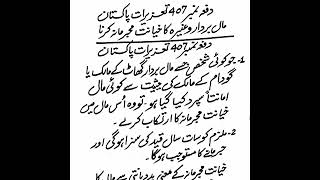 دفعہ نمبر 407 تعزیرات پاکستان
مال بردار وغیرہ کا خیانت مجرمانہ کرنا
دفعہ نمبر 407 تعزیرات پاکستان
1- جو کوئی شخص جسے مال بردار گھاٹ کے مالک یا
گودام کے مالک کی حیثیت سے کوئی مال
امانتاً سپرد کیا گیا ہو۔ تو وہ اُس مال میں
خیانت مجرمانہ کا ارتکاب کرے۔
2- ملزم کو سات سال قید کی سزا ہوگی اور
جرمانے کا مستوجب ہوگا۔
خیانت مجرمانہ کے معنی بددیانتی سے مال کا